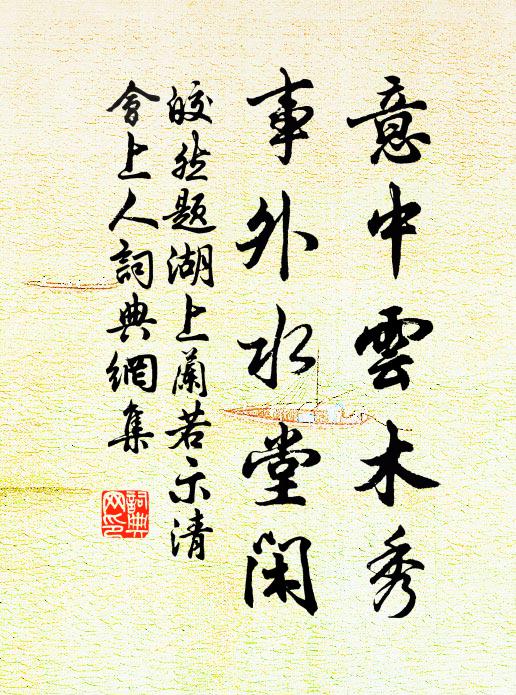 意中雲木秀
事外水堂閑
皎然題湖上蘭若示清
會上人詞典網集
詞典
网印